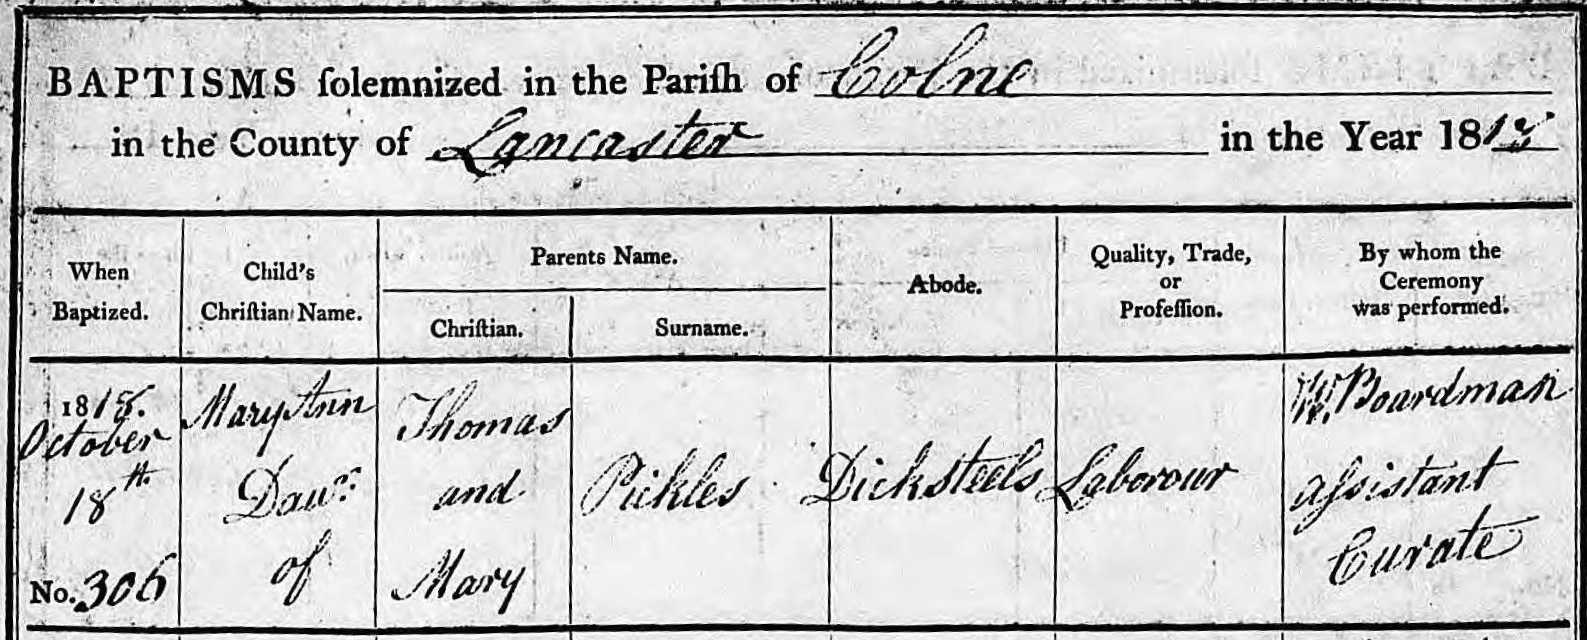 BAPTISMS ſolemnized in the Pariſh of Colne
in the County of Lancaster in the Year 1818
When
Baptized.
Child's
Chriſtian Name.
Parents Name.
Chriſtian.
Surname.
Abode.
Quality, Trade,
or
Profeſſion.
By whom the
Ceremony
was performed.
1818.
October
18th.
No. 306
Mary Ann
Daur.
of
Thomas
and
Mary
Pickles
Dicksteels
Laborour
W. Boardman
aſsistant
Curate